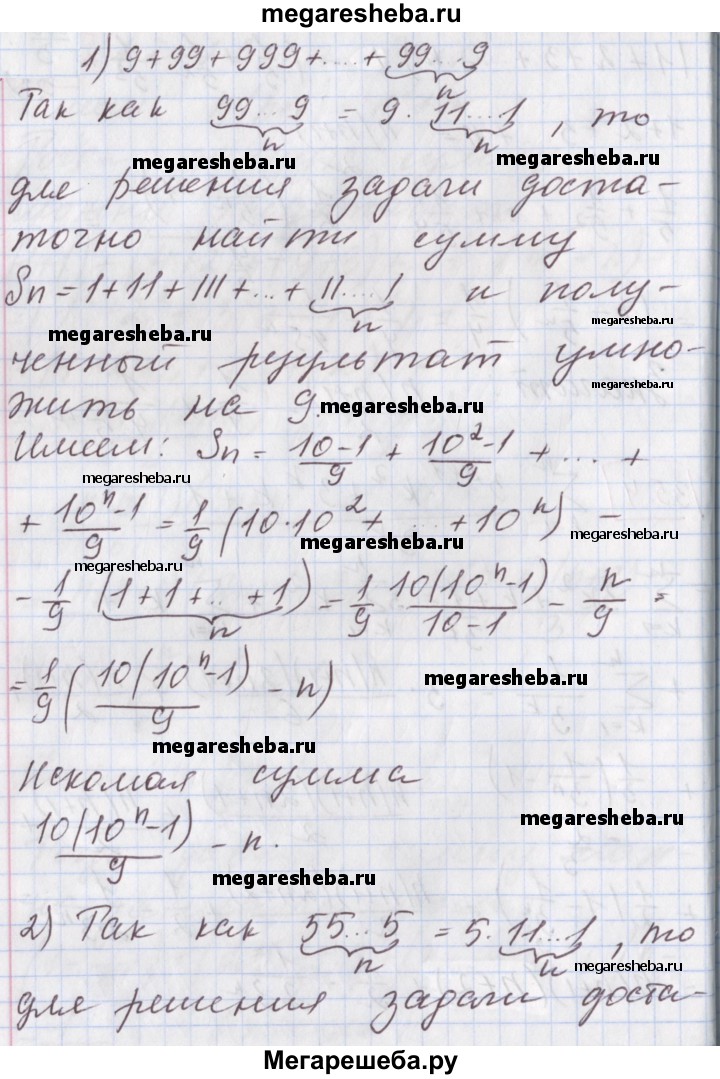 megaresheba.ru
1) 9+99+999+...+99...9
n
Так как 99...9 = 9·11...1, то
n n
megaresheba.ru megaresheba.ru
для решения задачи доста-
точно найти сумму
Sn = 1+11+111+...+11...1 и полу-
n
megaresheba.ru megaresheba.ru
ченный результат умно-
megaresheba.ru
жить на 9.
megaresheba.ru
Имеем: Sn = (10-1)/9 + (10²-1)/9 + ... +
megaresheba.ru
+ (10ⁿ-1)/9 = 1/9 (10·10²+...+10ⁿ) -
megaresheba.ru megaresheba.ru
megaresheba.ru
- 1/9 (1+1+...+1) = 1/9 10(10ⁿ-1)/(10-1) - n/9 =
n
= 1/9 (10(10ⁿ-1)/9 - n)
megaresheba.ru
megaresheba.ru
Искомая сумма
10(10ⁿ-1)/9 - n.
megaresheba.ru
megaresheba.ru
2) Так как 55...5 = 5·11...1, то
n n
megaresheba.ru
для решения задачи доста-
Мегарешеба.ру